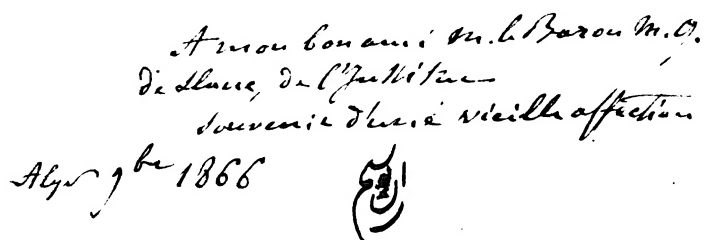 A mon bon ami M. le Baron M. G.
de Slane, de l'Institut
souvenir d'une vieille affection
Alger 9bre 1866